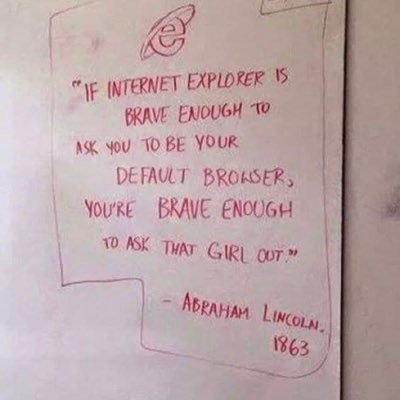 "IF INTERNET EXPLORER IS
BRAVE ENOUGH TO
ASK YOU TO BE YOUR
DEFAULT BROWSER,
YOU'RE BRAVE ENOUGH
TO ASK THAT GIRL OUT."
- ABRAHAM LINCOLN.
1863